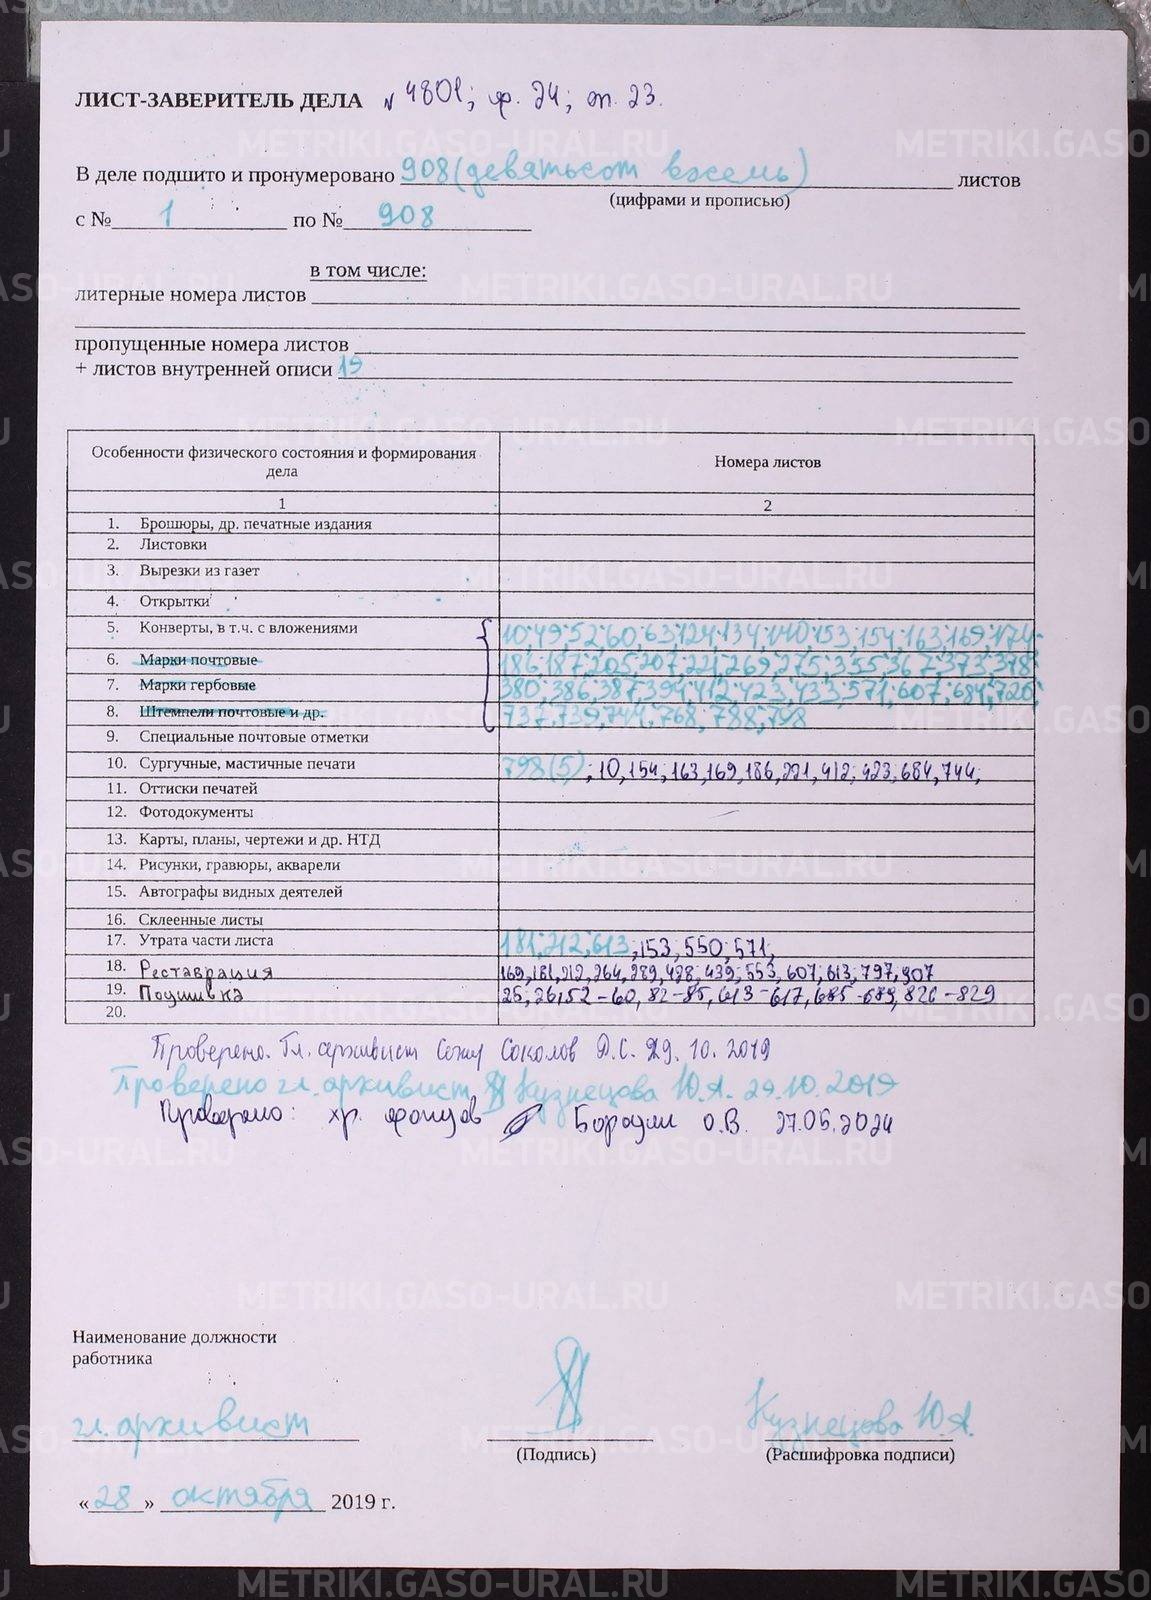 ЛИСТ-ЗАВЕРИТЕЛЬ ДЕЛА № 4801; ф. 24; оп. 23.
В деле подшито и пронумеровано 908 (девятьсот восемь) листов
(цифрами и прописью)
с № 1 по № 908
в том числе:
литерные номера листов
пропущенные номера листов
+ листов внутренней описи 19
Особенности физического состояния и формирования дела Номера листов
1 2
1. Брошюры, др. печатные издания
2. Листовки
3. Вырезки из газет
4. Открытки
5. Конверты, в т.ч. с вложениями 10; 49; 52; 60; 63; 124; 134; 140; 153; 154; 163; 169; 174;
6. Марки почтовые 186; 187; 205; 207; 221; 269; 275; 355; 367; 373; 378;
7. Марки гербовые 380; 386; 387; 394; 412; 423; 433; 571; 607; 684; 720;
8. Штемпели почтовые и др. 737, 739, 744, 768, 788, 798
9. Специальные почтовые отметки
10. Сургучные, мастичные печати 798(5); 10, 154; 163, 169, 186, 221, 412; 423; 684, 744;
11. Оттиски печатей
12. Фотодокументы
13. Карты, планы, чертежи и др. НТД
14. Рисунки, гравюры, акварели
15. Автографы видных деятелей
16. Склеенные листы
17. Утрата части листа 181; 212; 613; 153; 550; 571;
18. Реставрация 169, 181, 212, 264, 289, 428; 439; 553, 607; 613; 797, 907
19. Подшивка 25; 26, 52-60, 82-85, 613-617, 685-689, 826-829
20.
Проверено. Гл. архивист Соколов Д.С. 29.10.2019
Проверено гл. архивист Кузнецова Ю.А. 29.10.2019
Проверено: хр. фондов Бородин О.В. 27.05.2024
Наименование должности
работника
гл. архивист Кузнецова Ю.А.
(Подпись) (Расшифровка подписи)
«28» октября 2019 г.
METRIKI.GASO-URAL.RU